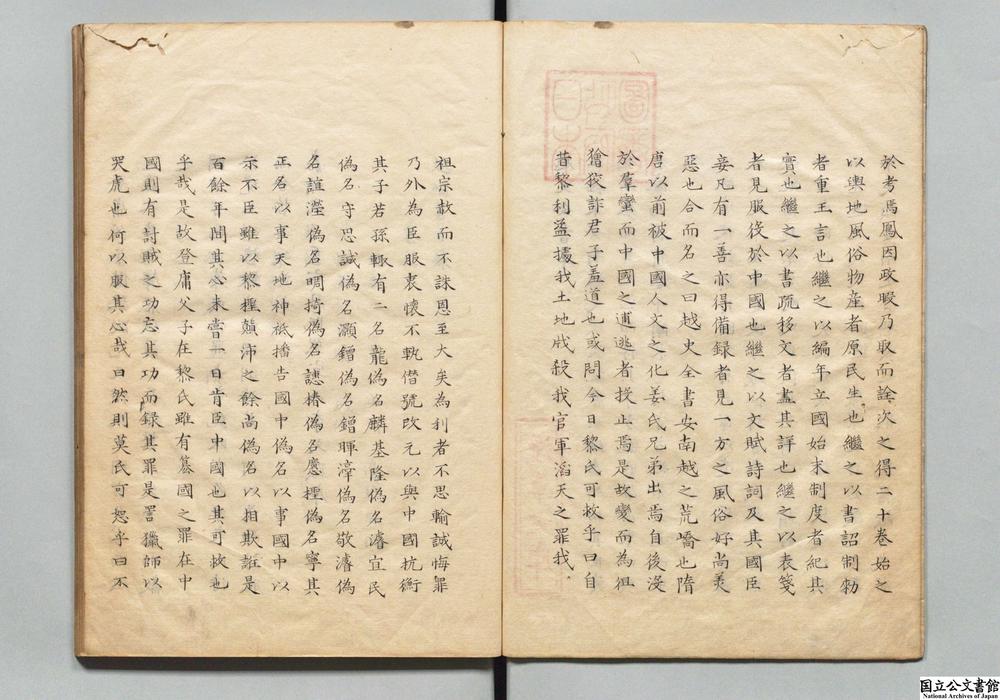 於考焉鳳因政暇乃取而詮次之得二十卷始之
以輿地風俗物産者原民生也繼之以書詔制勑
者重王言也繼之以編年立國始末制度者紀其
實也繼之以書疏移文者盡其詳也繼之以表箋
者見服役於中國也繼之以文賦詩詞及其國臣
妾凡有一善亦得備録者見一方之風俗好尚美
惡也合而名之曰越史全書安南越之荒嶠也隋
唐以前被中國人文之化姜氏兄弟出焉自後漫
於羣蠻而中國之逋逃者投止焉是故變而為狙
獪狡詐君子羞道也或問今日黎氏可赦乎曰自
昔黎利盜據我土地戕殺我官軍滔天之罪我
祖宗赦而不誅恩至大矣為利者不思輸誠悔罪
乃外為臣服衷懷不軌僣號改元以與中國抗衡
其子若孫輙有二名龍偽名麟基隆偽名濬宜民
偽名守思誠偽名灝鏳偽名鏳暉漳偽名敬濬偽
名誼瀅偽名晭掎偽名譓椿偽名應㮙偽名寧其
正名以事天地神祇播告國中偽名以事國中以
示不臣雖以黎㮙顛沛之餘尚偽名以相欺誑是
百餘年間其心未嘗一日肯臣中國也其可赦也
乎哉是故登庸父子在黎氏雖有簒國之罪在中
國則有討賊之功忘其功而録其罪是詈獵師以
哭虎也何以服其心哉曰然則莫氏可恕乎曰不
国立公文書館
National Archives of Japan